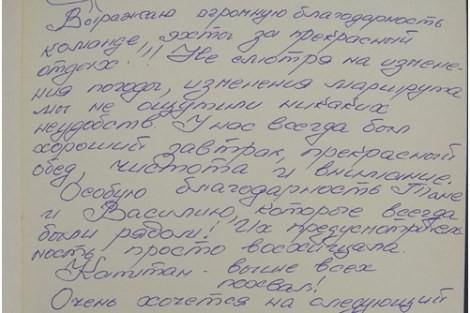 Выражаю огромную благодарность
команде яхты за прекрасный
отдых!!! Не смотря на измене-
ния погоды, изменения маршрута
мы не ощутили никаких
неудобств. У нас всегда был
хороший завтрак, прекрасный
обед, чистота и внимание.
Особую благодарность Тане
и Василию, которые всегда
были рядом! Их предусмотритель-
ность просто восхищала.
Капитан - выше всех
похвал!
Очень хочется на следующий